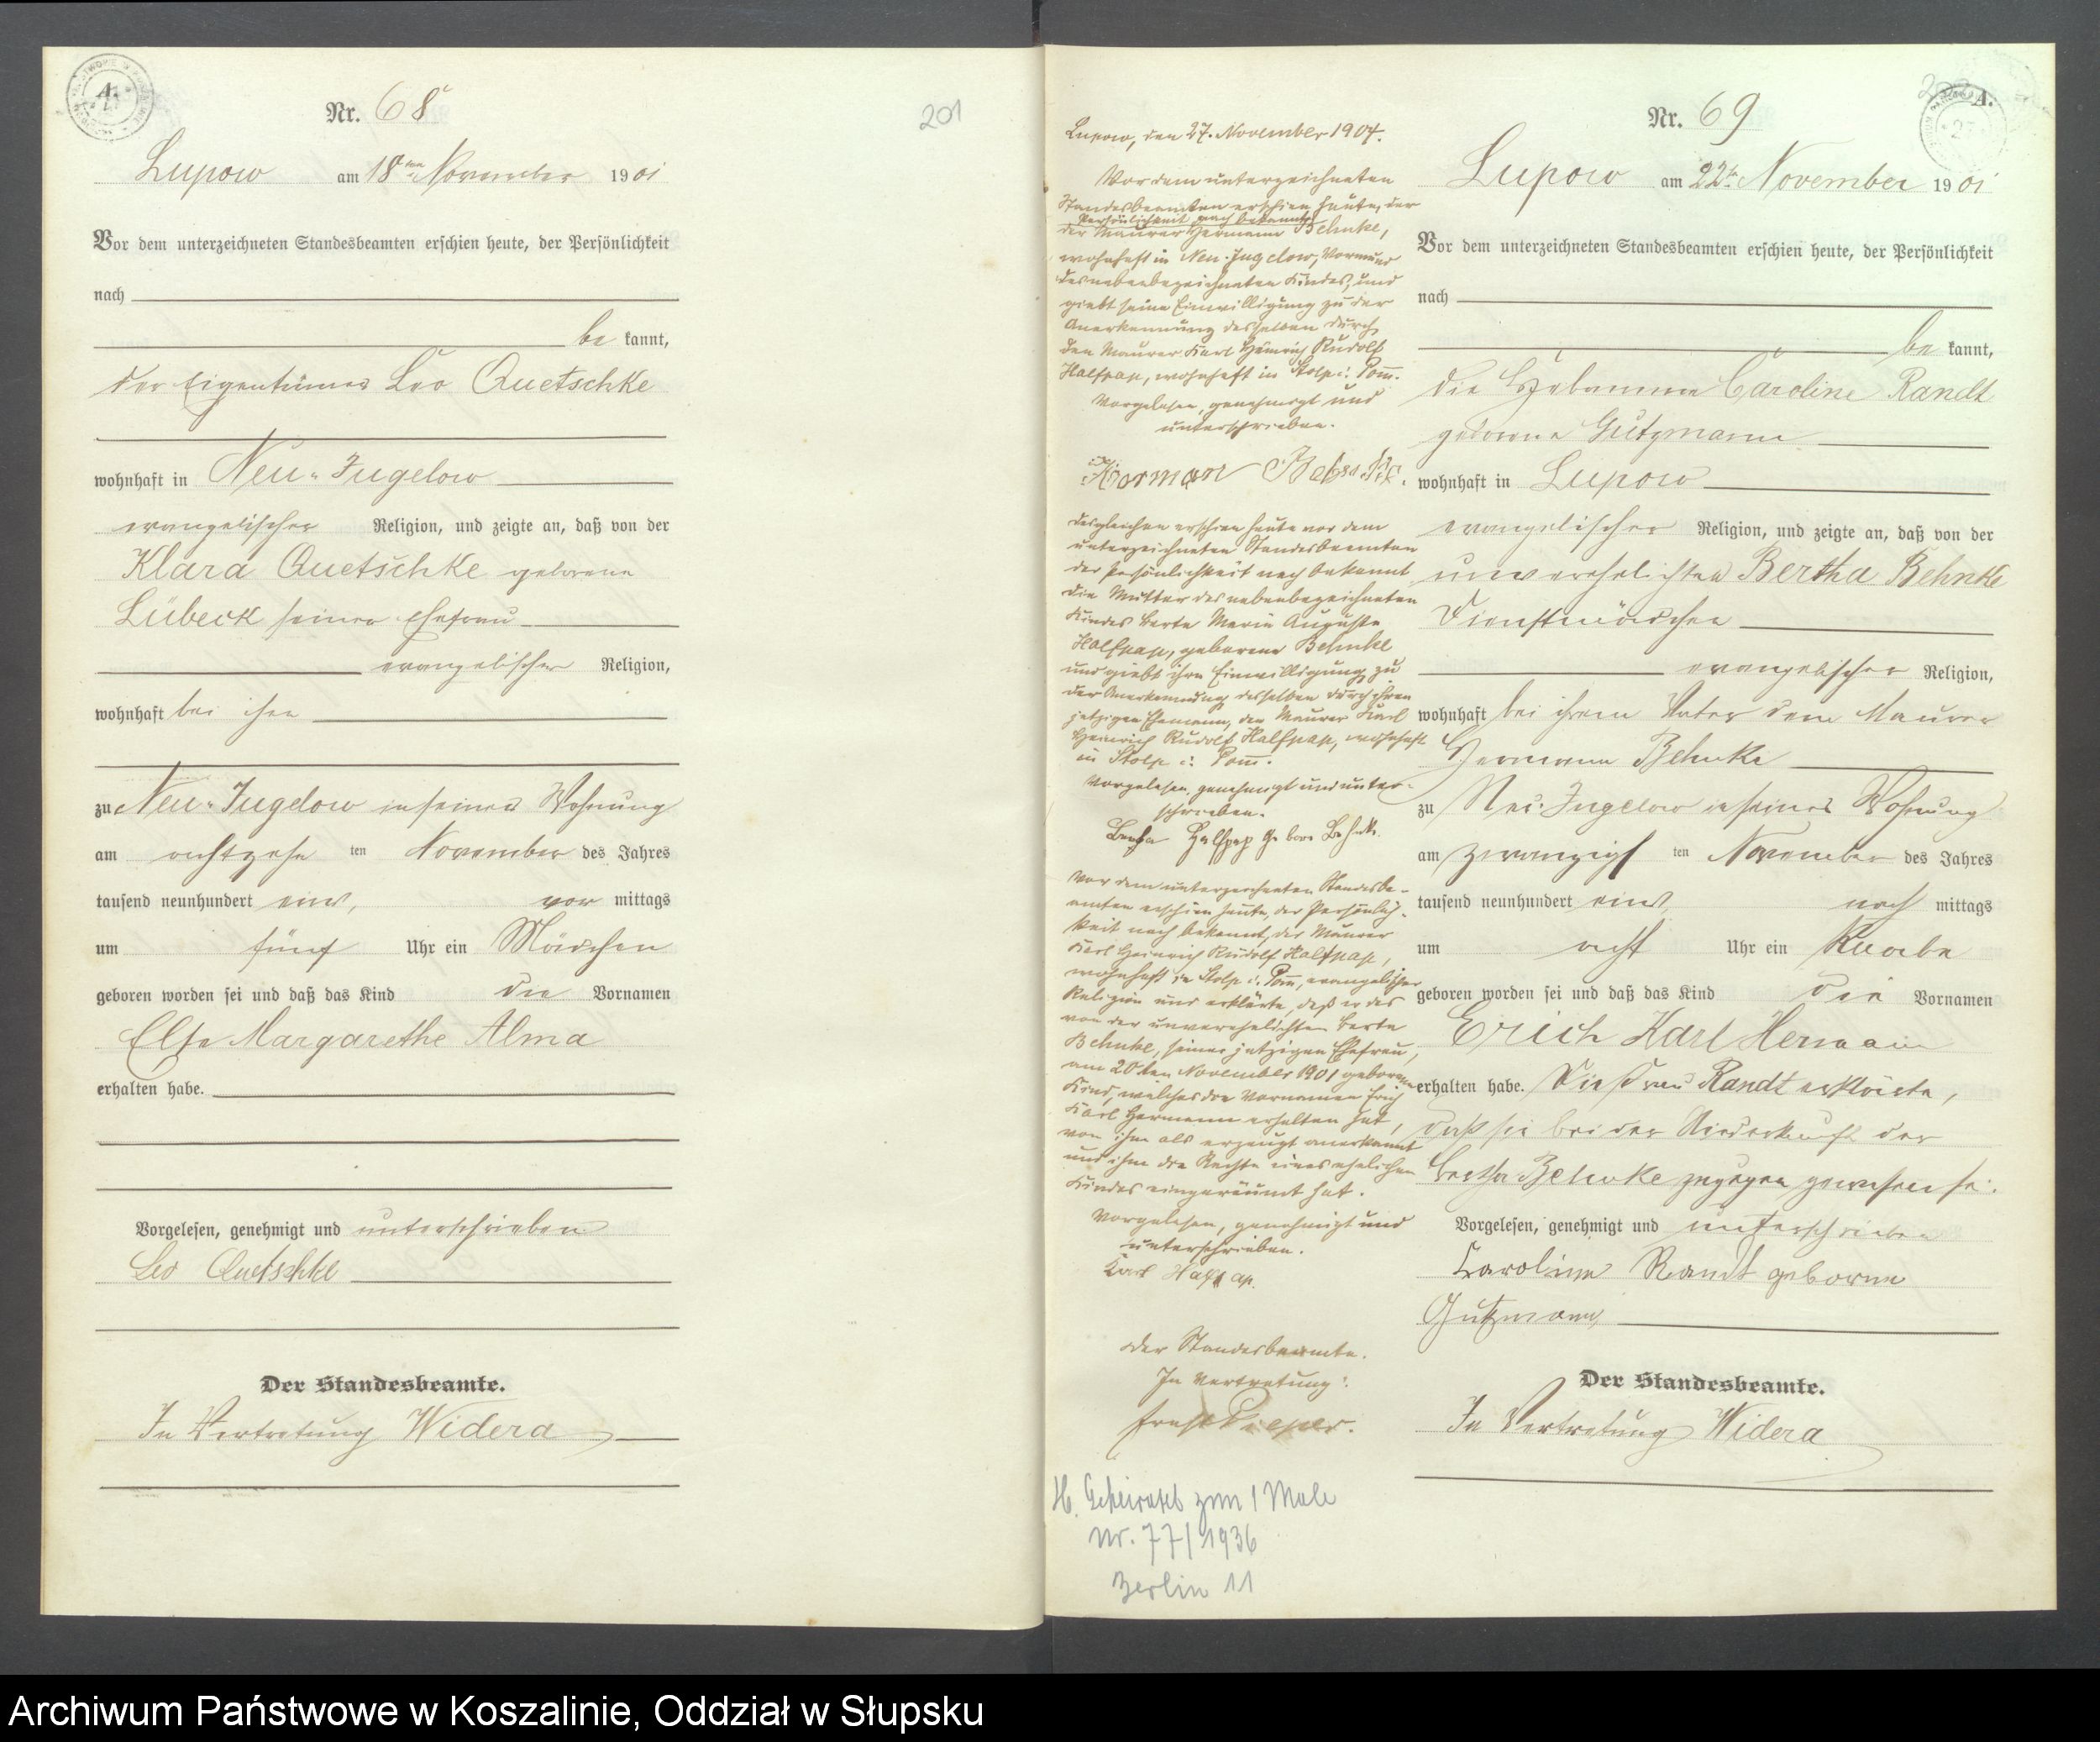 A.
Nr. 68
201
Lupow am 18ten November 1901
Vor dem unterzeichneten Standesbeamten erschien heute, der Persönlichkeit
nach
be kannt,
der Eigentümer Leo Quetschke
wohnhaft in Neu-Jugelow
evangelischer Religion, und zeigte an, daß von der
Klara Quetschke geborene
Lübeck seiner Ehefrau
evangelischer Religion,
wohnhaft bei ihm
zu Neu-Jugelow in seiner Wohnung
am achtzehn ten November des Jahres
tausend neunhundert eins, vor mittags
um fünf Uhr ein Mädchen
geboren worden sei und daß das Kind die Vornamen
Else Margarethe Alma
erhalten habe.
Vorgelesen, genehmigt und unterschrieben
Leo Quetschke
Der Standesbeamte.
In Vertretung Widera
Lupow, den 27. November 1904.
Vor dem unterzeichneten
Standesbeamten erschien heute, der
Persönlichkeit nach bekannt,
der Maurer Hermann Behnke,
wohnhaft in Neu-Jugelow, Vormund
des nebenbezeichneten Kindes, und
giebt seine Einwilligung zu der
Anerkennung desselben durch
den Maurer Karl Heinrich Rudolf
Halfpap, wohnhaft in Stolp i. Pom.
Vorgelesen, genehmigt und
unterschrieben.
Herman Behnke.
Desgleichen erschien heute vor dem
unterzeichneten Standesbeamten
der Persönlichkeit nach bekannt
die Mutter des nebenbezeichneten
Kindes Berta Marie Auguste
Halfpap, geborene Behnke
und giebt ihre Einwilligung zu
der Anerkennung desselben durch ihren
jetzigen Ehemann, den Maurer Karl
Heinrich Rudolf Halfpap, wohnhaft
in Stolp i. Pom.
Vorgelesen, genehmigt und unter-
schrieben.
Berta Halfpap geborene Behnke
Vor dem unterzeichneten Standesbe-
amten erschien heute, der Persönlich-
keit nach bekannt, der Maurer
Karl Heinrich Rudolf Halfpap,
wohnhaft in Stolp i. Pom, evangelischer
Religion und erklärte, daß er das
von der unverehelichten Berta
Behnke, seiner jetzigen Ehefrau,
am 20ten November 1901 geborene
Kind, welches die Vornamen Erich
Karl Hermann erhalten hat,
von ihm als erzeugt anerkannt
und ihm die Rechte eines ehelichen
Kindes eingeräumt hat.
Vorgelesen, genehmigt und
unterschrieben.
Karl Halfpap.
Der Standesbeamte.
In Vertretung:
Ernst Pieper.
H. Geheiratet zum 1 Male
Nr. 77/1936
Berlin 11
A.
Nr. 69
Lupow am 22ten November 1901
Vor dem unterzeichneten Standesbeamten erschien heute, der Persönlichkeit
nach
be kannt,
die Hebamme Caroline Randt
geborene Gutzmann
wohnhaft in Lupow
evangelischer Religion, und zeigte an, daß von der
unverehelichten Bertha Behnke
Dienstmädchen
evangelischer Religion,
wohnhaft bei ihrem Vater dem Maurer
Hermann Behnke
zu Neu-Jugelow in seiner Wohnung
am zwanzigs ten November des Jahres
tausend neunhundert eins nach mittags
um acht Uhr ein Knabe
geboren worden sei und daß das Kind die Vornamen
Erich Karl Hermann
erhalten habe. Die Frau Randt erklärte,
daß sie bei der Niederkunft der
Bertha Behnke zugegen gewesen sei.
Vorgelesen, genehmigt und unterschrieben
Caroline Randt geborne
Gutzmann,
Der Standesbeamte.
In Vertretung Widera
Archiwum Państwowe w Koszalinie, Oddział w Słupsku